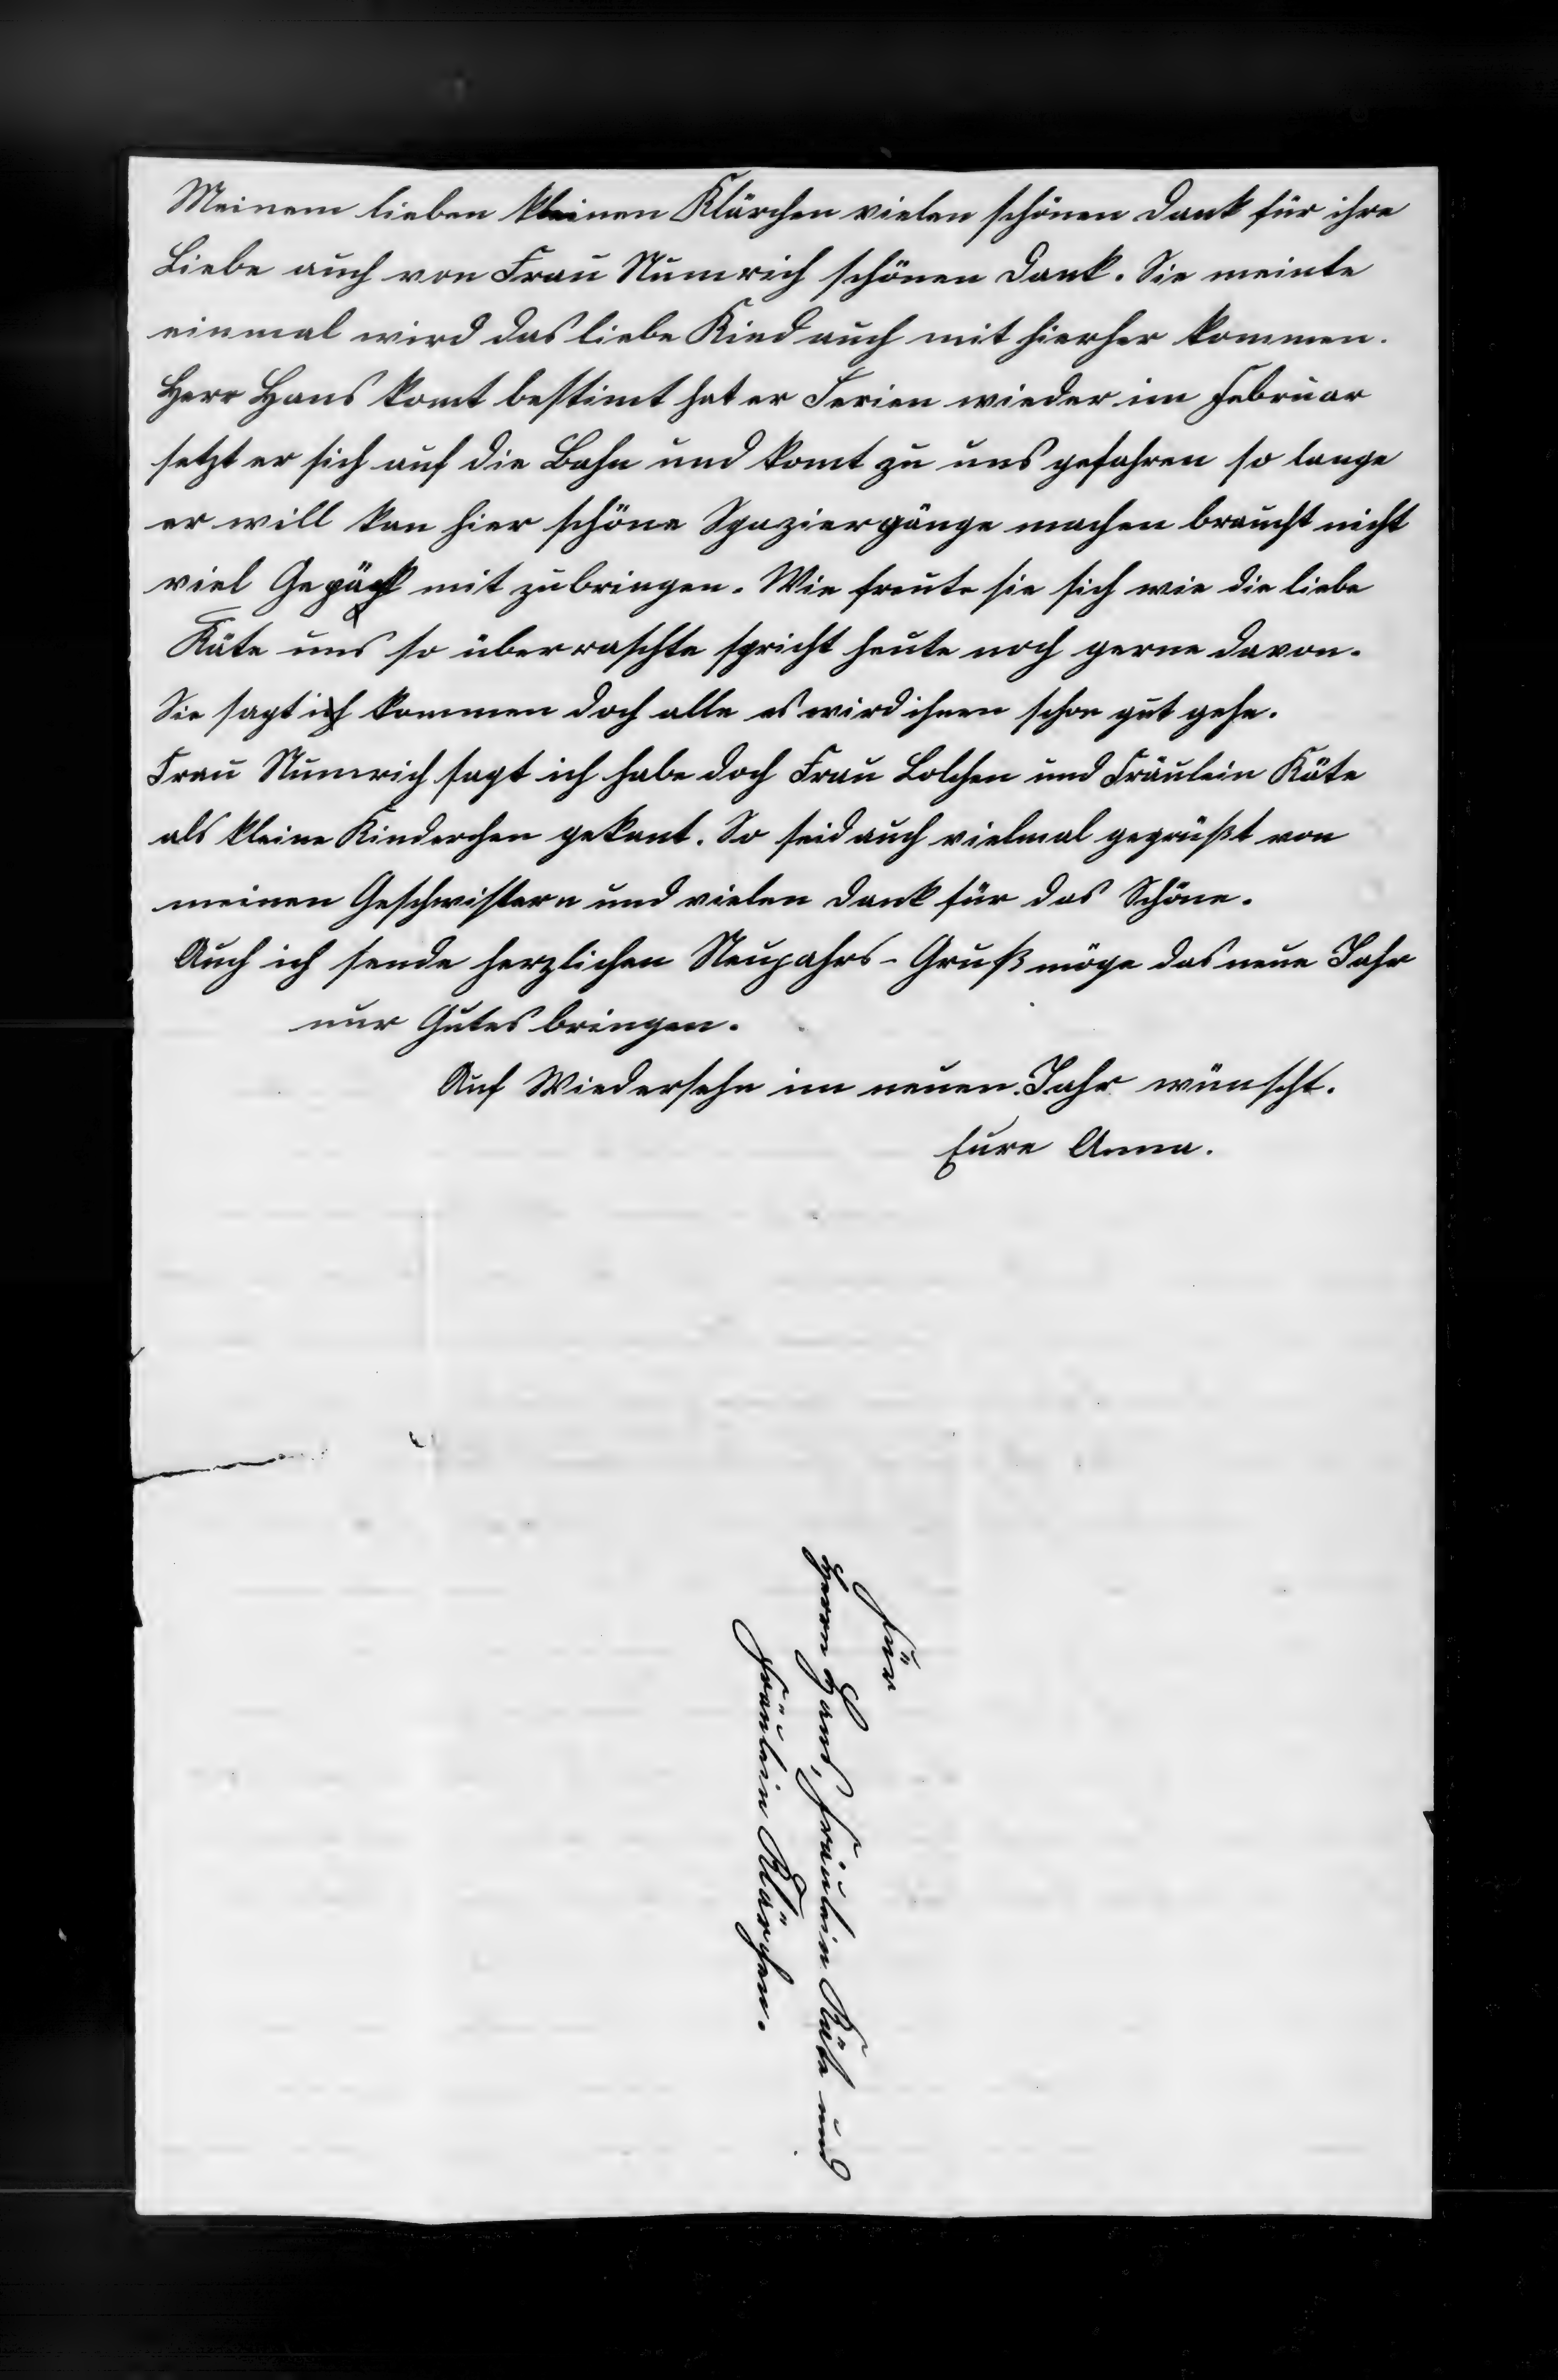 Meinem lieben kleinen Klärchen vielen schönen Dank für ihre
Liebe auch von Frau Numrich schönen Dank. Sie meinte
einmal wird das liebe Kind auch mit hierher kommen.
Herr Hans komt bestimt hat er Ferien wieder im Februar
setzt er sich auf die Bahn und komt zu uns gefahren so lange
er will kan hier schöne Spaziergänge machen braucht nicht
viel Gepäck mit zubringen. Wie freute sie sich wie die liebe
Käte uns so überraschte spricht heute noch gerne davon.
Sie sagt ich kommen doch alle es wird ihnen schon gut gehn.
Frau Numrich sagt ich habe doch Frau Lolchen und Fräulein Käte
als kleine Kinderchen gekant. So seid auch vielmal gegrüßt von
meinen Geschwistern und vielen Dank für das Schöne.
Auch ich sende herzlichen Neujahrs-Gruß möge das neue Jahr
nur Gutes bringen.
Auf Wiedersehn im neuen Jahr wünscht.
Eure Anna.
Für
Herrn Hans, Fräulein Käte und
Fräulein Klärchen.